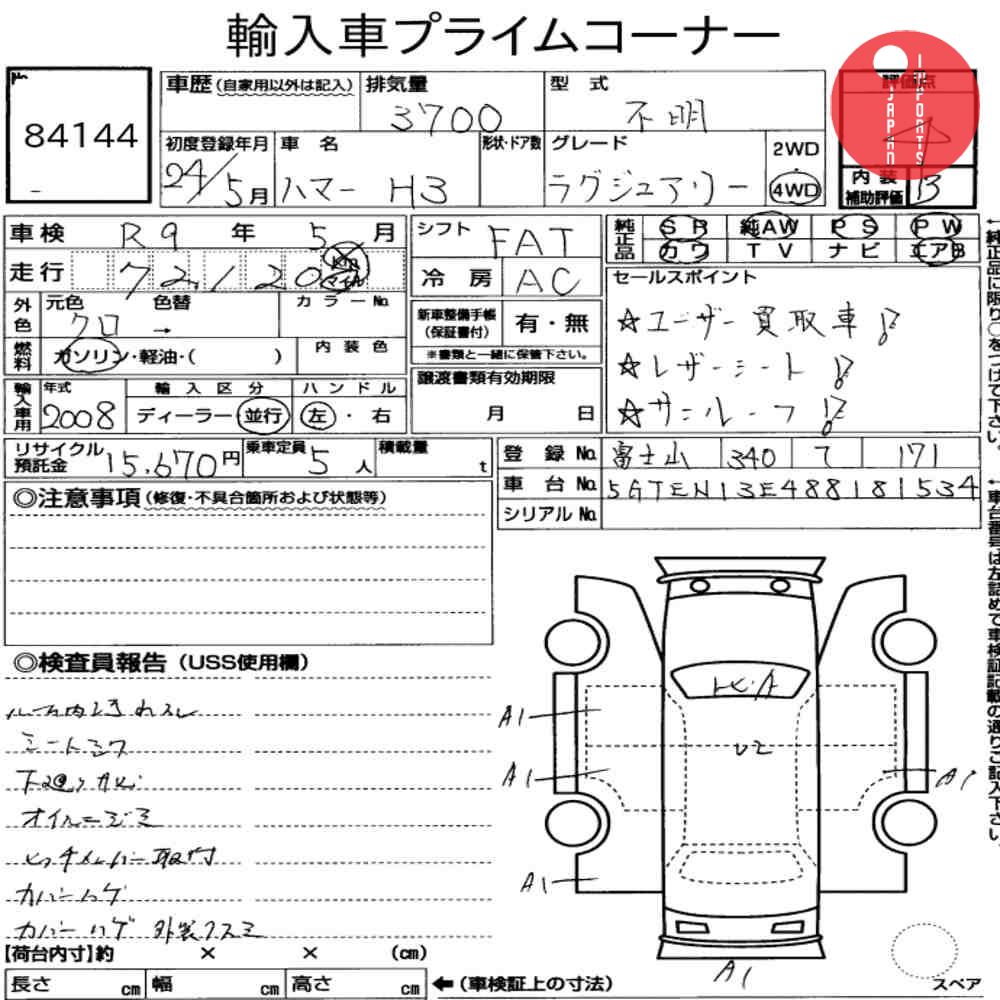 輸入車プライムコーナー
No.
84144
車歴 (自家用以外は記入)
排気量
3700
型 式
不明
評価点
4
JAPAN IMPORTS
初度登録年月
24/5月
車 名
ハマー H3
形状・ドア数
グレード
ラグジュアリー
2WD
4WD
内装
補助評価
B
車検 R9 年 5 月
走行 72,120 km マイル
シフト FAT
冷房 AC
純正品
SR 純AW PS PW
カワ TV ナビ エアB
セールスポイント
☆ユーザー買取車!!
☆レザーシート!!
☆サンルーフ!!
外色
元色 クロ
色替 →
カラーNo.
燃料
ガソリン・軽油・( )
内装色
新車整備手帳
(保証書付)
有・無
※書類と一緒に保管下さい。
輸入車用
年式
2008
輸入区分
ディーラー・並行
ハンドル
左・右
譲渡書類有効期限
月 日
リサイクル
預託金
15,670円
乗車定員
5人
積載量
t
登録No. 富士山 340 て 171
車台No. 5GTEN13E488181534
シリアルNo.
◎注意事項 (修復・不具合箇所および状態等)
◎検査員報告 (USS使用欄)
ルーム内キれスレ
シートシワ
オイルニジミ
ヒッチメンバー取付
カバーハゲ
カバーハゲ 外装クスミ
A1
A1
A1
A1
U2
A1
【荷台内寸】約 × × (cm)
長さ cm 幅 cm 高さ cm
←(車検証上の寸法)
スペア
←純正品に限り○をつけて下さい。
←車台番号は左詰めで車検証記載の通りご記入下さい。